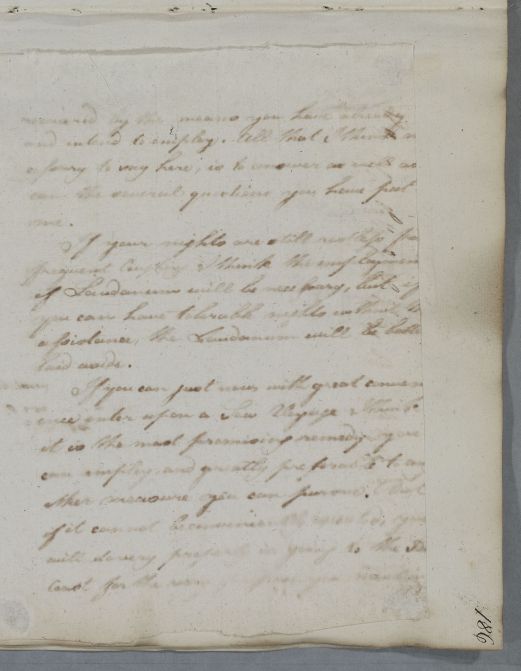 removed by the means you have already
and intend to employ. All that I think n
essary to say here, is to answer as well as
can the several questions you have put
me.
If your nights are still restless from
frequent Coughing I think the employmen
of Laudanum will be necessary, but if
you can have tolerable nights without
assistance, the Laudanum will be bett
laid aside.
If you can just now with great conven
ience enter upon a Sea Voyage I think
it is the most promising remedy you
can employ, and greatly preferable to any
other measure you can pursue. But
if it cannot be conveniently you
will do very properly in going to the
Coast for the
186